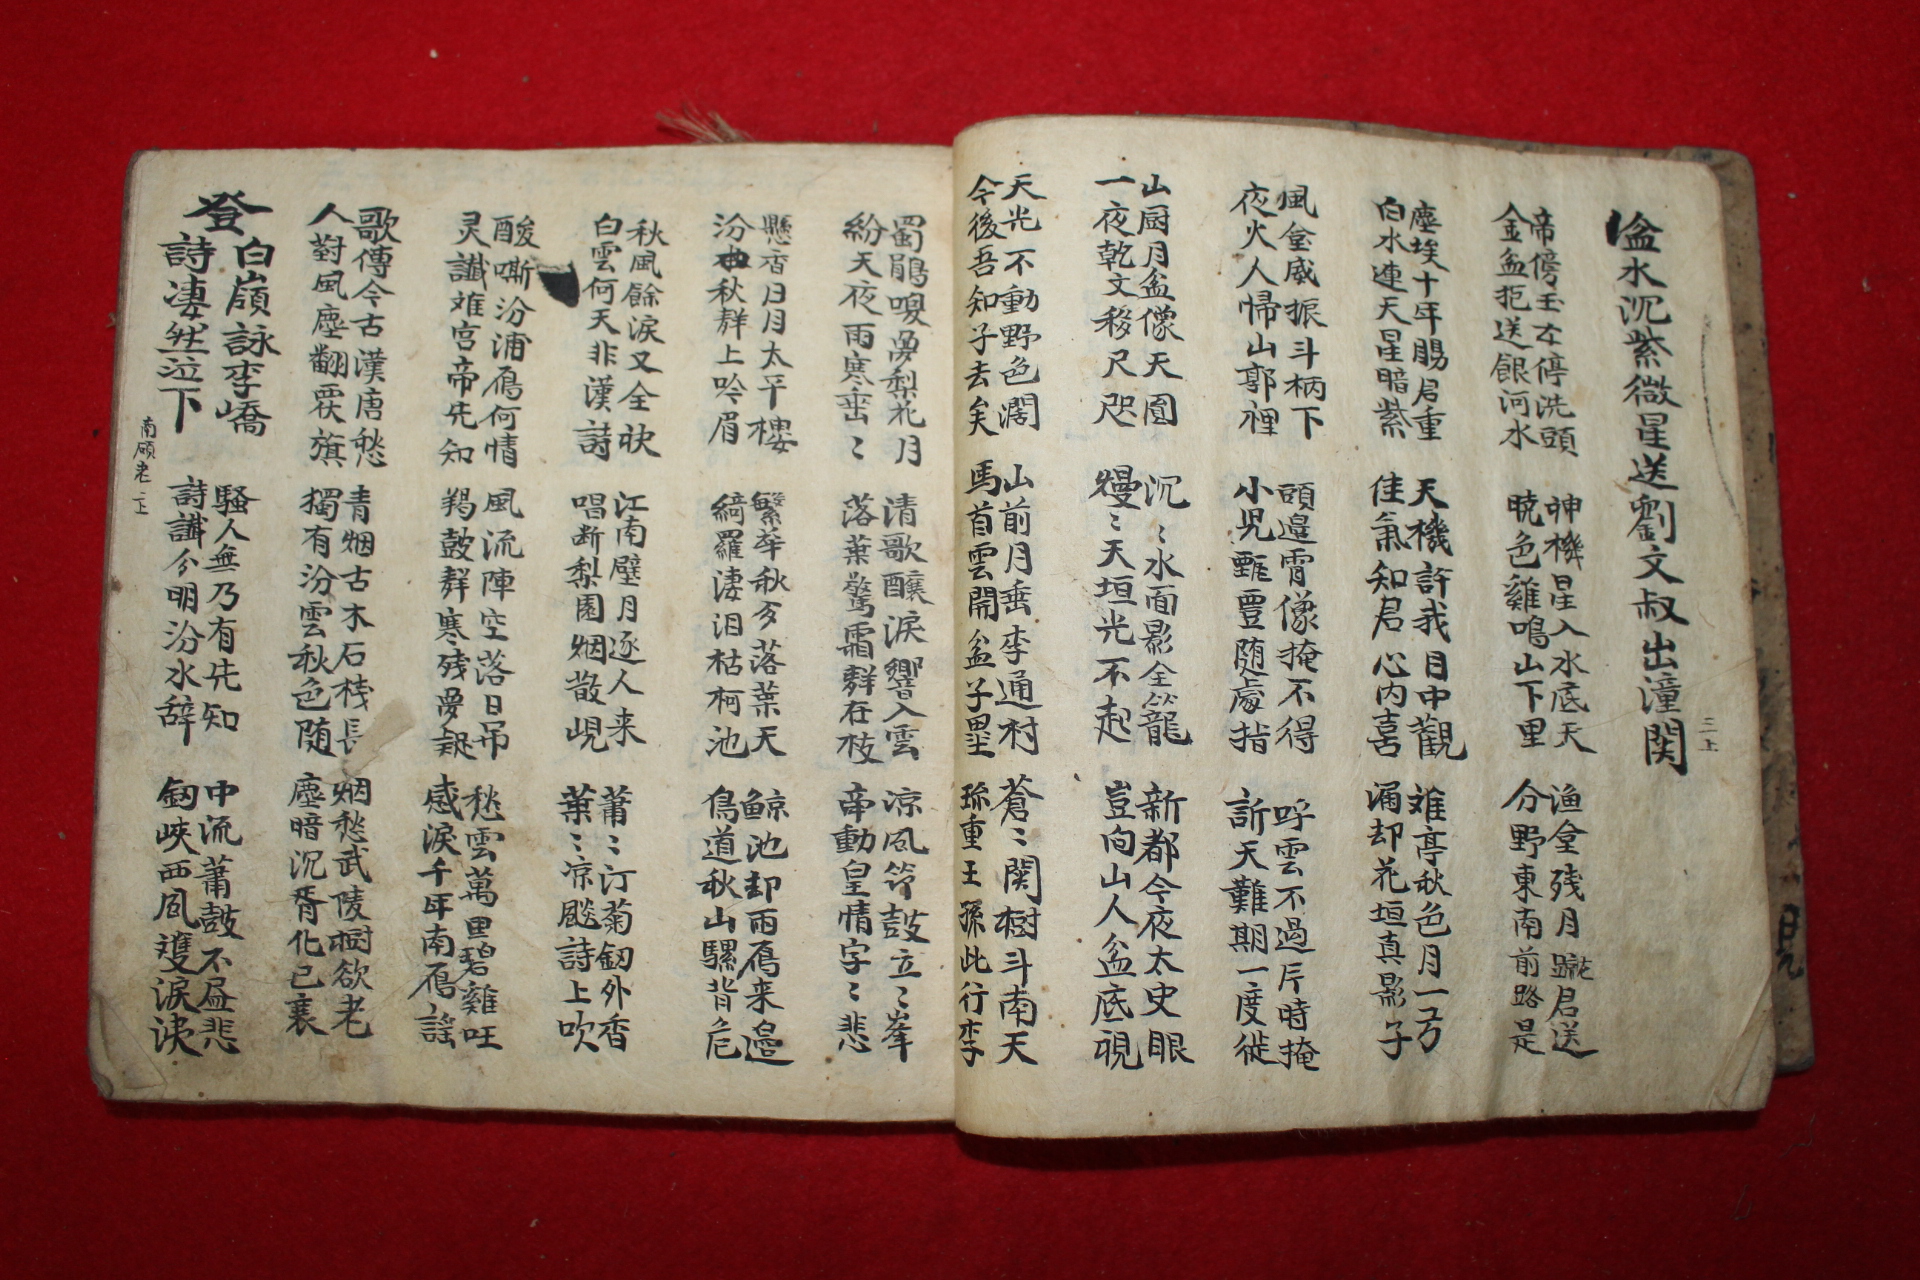 盆水沉紫微星送劉文叔出潼関
三上
帝傍玉本停洗頭
金盆抱送銀河水
神機星入水底天
曉色雞鳴山下里
渔金残月蹤君送
分野東南前路是
塵埃十年賜君重
白水連天星暗紫
天機許我目中觀
佳氣知君心内喜
难亭秋色月一万
涌却花垣真影子
風金威振斗柄下
夜火人帰山郭裡
頭邉霄像掩不得
小児甄豊随處指
呼雲不過片時掩
訢天難期一度徙
山厨月盆像天圓
一夜乾文移尺咫
沉〻水面影全籠
熳〻天垣光不起
新都今夜太史眼
豈向山人盆底視
天光不動野色濶
今後吾知子去矣
山前月垂李通村
馬首雲開盆子壘
蒼〻関樹斗南天
珎重王孫此行李
蜀鵑嗅夢梨花月
紛天夜雨寒峦〻
清歌釀淚響入雲
落葉驚霜群在枝
凉風笳鼓立〻峯
帝動皇情字〻悲
懸杳日月太平樓
汾曲秋群上吟眉
繁華秋夕落葉天
綺羅凄泪枯柯池
鯨池却雨鴈来邉
鳥道秋山騾背危
秋風餘淚又全袂
白雲何天非漢詩
江南壁月逐人来
唱断梨園烟散峴
莆〻汀菊釰外香
葉〻凉颷詩上吹
酸嘶汾浦鴈何情
灵讖难宮帝先知
風流陣空落日吊
羯鼓群寒残夢疑
愁雲萬里碧雞旺
感淚千年南鴈謡
歌傳今古漢唐愁
人對風塵翻覆旗
青烟古木石棧長
獨有汾雲秋色随
烟愁武陵樹欲老
塵暗沉香化已衰
登白嶺詠李嶠
詩凄然泣下
南碩老 二上
騷人無乃有先知
詩讖分明汾水辞
中流莆鼓不昼悲
釰峽西風雙淚淚